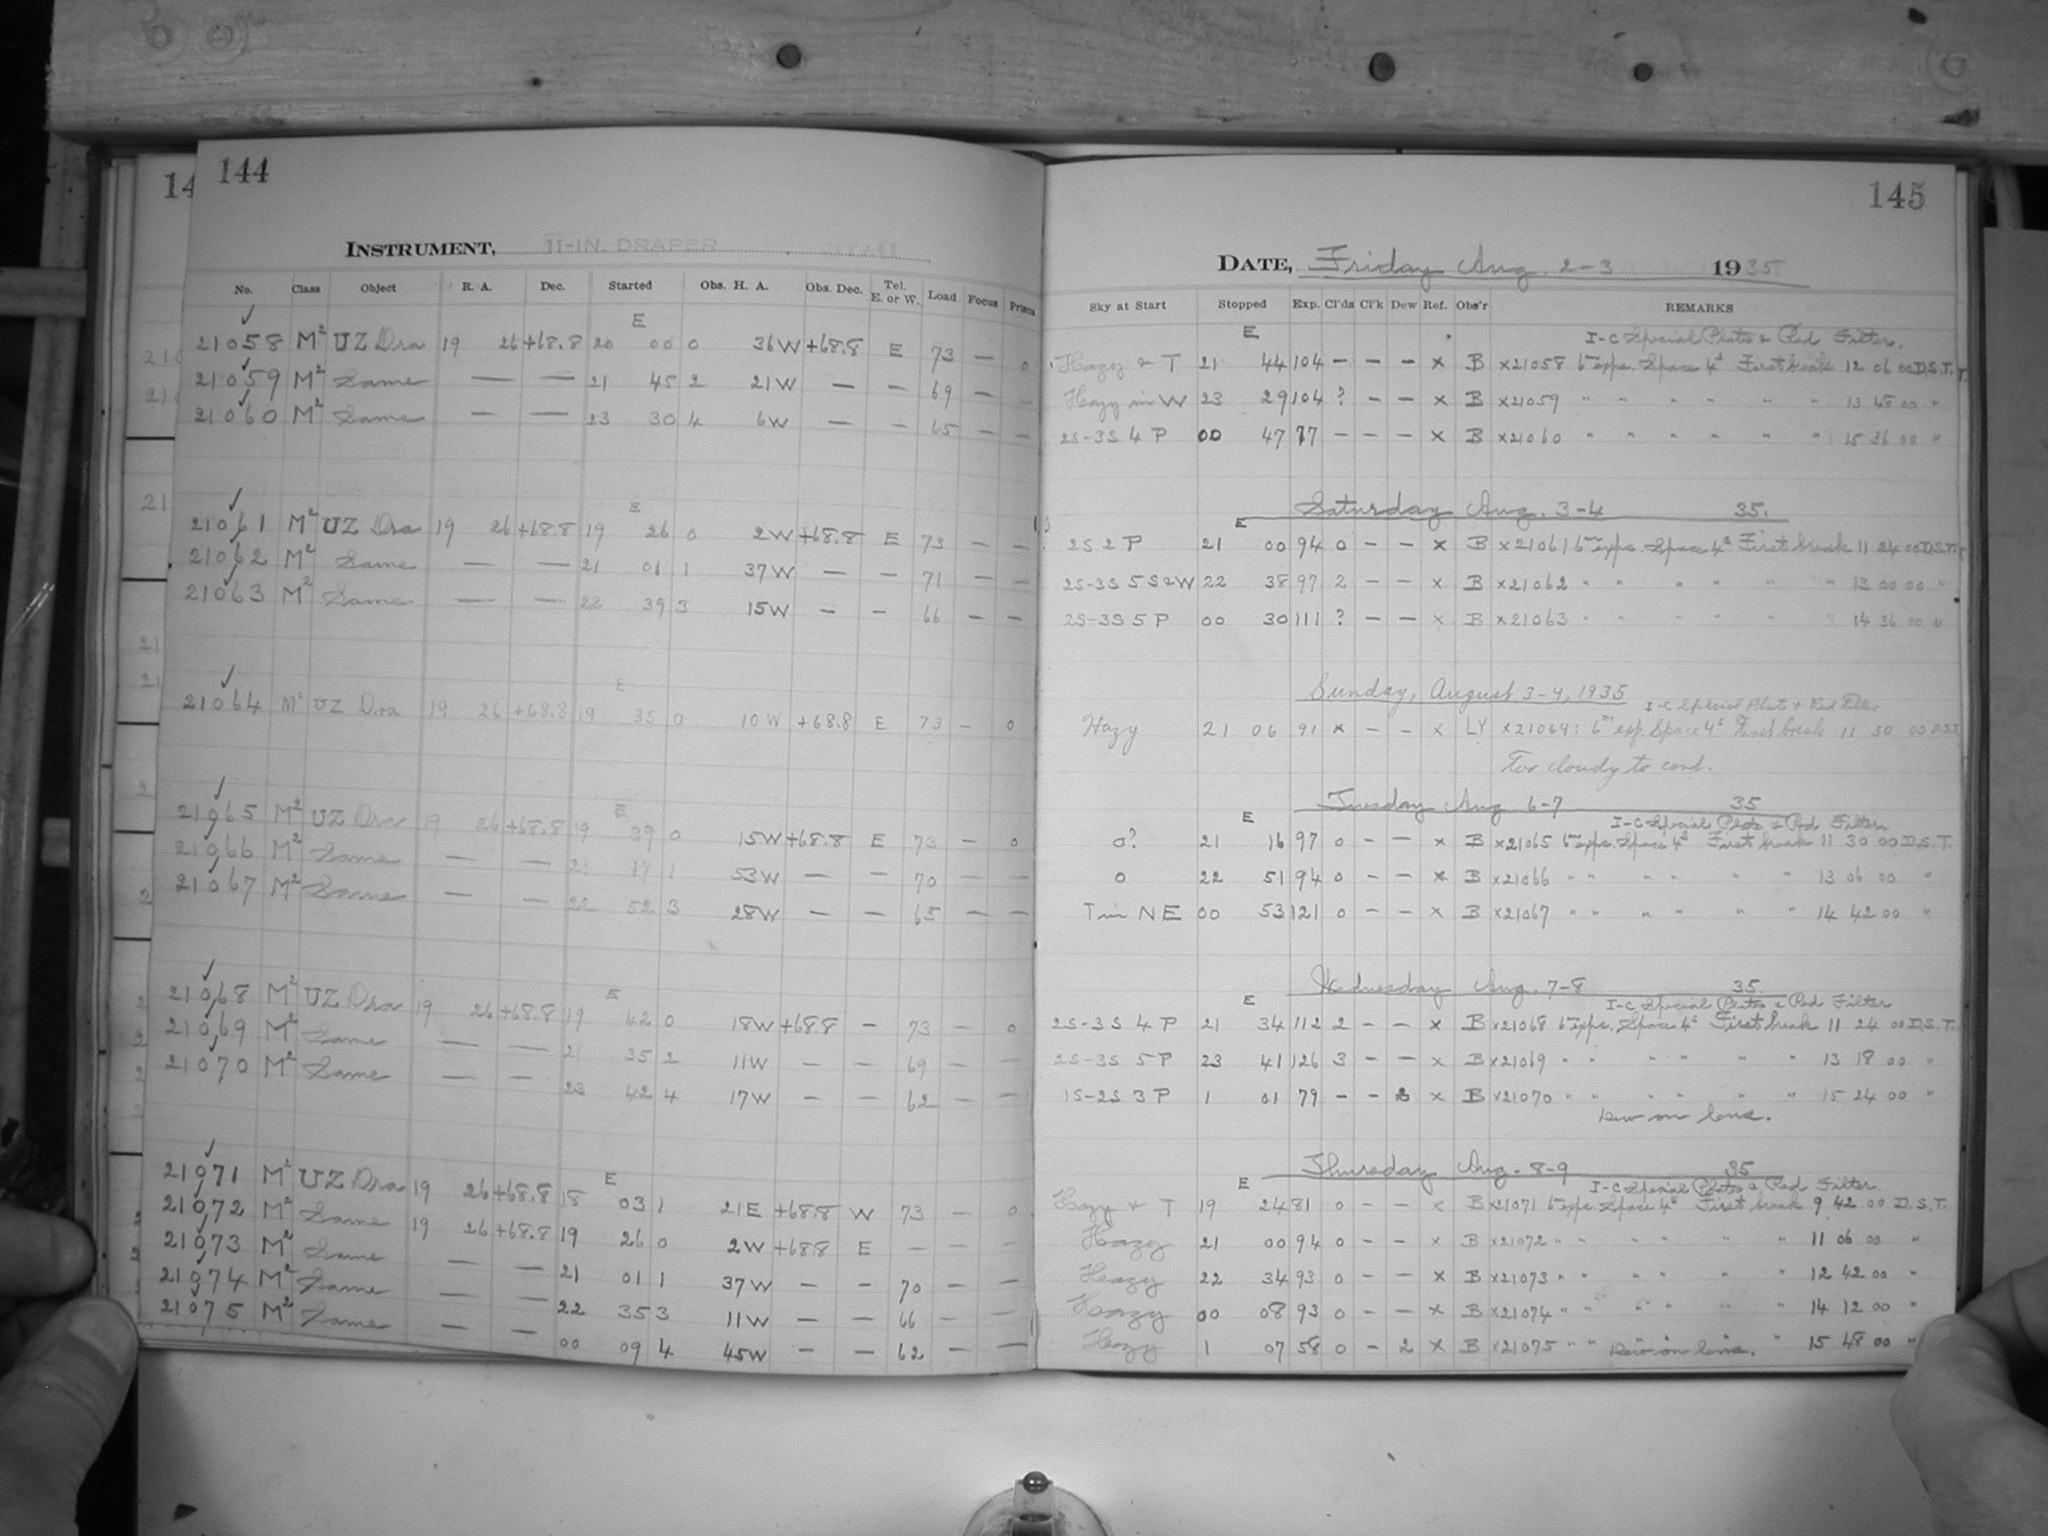 144
INSTRUMENT, 11-IN. DRAPER
No. Class Object R. A. Dec. Started Obs. H. A. Obs. Dec. Tel. E. or W. Load Focus Prisms
E
21058 M² UZ Dra 19 26 +68.8 20 00 0 36W +68.8 E 73 — 0
21059 M² Same — — 21 45 2 21W — — 69 — —
21060 M² Same — — 23 30 4 6W — — 65 — —
E
21061 M² UZ Dra 19 26 +68.8 19 26 0 2W +68.8 E 73 — —
21062 M² Same — — 21 01 1 37W — — 71 — —
21063 M² Same — — 22 39 3 15W — — 66 — —
E
21064 M² UZ Dra 19 26 +68.8 19 35 0 10W +68.8 E 73 — 0
E
21065 M² UZ Dra 19 26 +68.8 19 39 0 15W +68.8 E 73 — 0
21066 M² Same — — 21 17 1 53W — — 70 — —
21067 M² Same — — 22 52 3 28W — — 65 — —
E
21068 M² UZ Dra 19 26 +68.8 19 42 0 18W +68.8 — 73 — 0
21069 M² Same — — 21 35 2 11W — — 69 — —
21070 M² Same — — 23 42 4 17W — — 62 — —
E
21071 M² UZ Dra 19 26 +68.8 18 03 1 21E +68.8 W 73 — 0
21072 M² Same 19 26 +68.8 19 26 0 2W +68.8 E — — —
21073 M² Same — — 21 01 1 37W — — 70 — —
21074 M² Same — — 22 35 3 11W — — 66 — —
21075 M² Same — — 00 09 4 45W — — 62 — —
145
DATE, Friday Aug. 2-3 1935.
Sky at Start Stopped Exp. Cl'ds Cl'k Dew Ref. Obs'r REMARKS
E I-C Special Plate & Red Filter.
Hazy & T 21 44 104 — — — x B x21058 6ᵐ exps. Space 4ˢ First break 12 06 00 D.S.T.
Hazy in W 23 29 104 ? — — x B x21059 " " " " " " 13 48 00 "
2S-3S 4 P 00 47 77 — — — x B x21060 " " " " " " 15 36 00 "
Saturday Aug. 3-4 35.
E
2S 2 P 21 00 94 0 — — x B x21061 6ᵐ exps. Space 4ˢ First break 11 24 00 D.S.T.
2S-3S 5 S&W 22 38 97 2 — — x B x21062 " " " " " " 13 00 00 "
2S-3S 5 P 00 30 111 ? — — x B x21063 " " " " " " 14 36 00 "
Sunday, August 3-4, 1935
I-C Special Plate & Red Filter
Hazy 21 06 91 x — — x LY x21064: 6ᵐ exp. Space 4ˢ First break 11 30 00 D.S.T.
Too cloudy to cont.
Tuesday Aug 6-7 35
E I-C Special Plate & Red Filter
0? 21 16 97 0 — — x B x21065 6ᵐ exps. Space 4ˢ First break 11 30 00 D.S.T.
0 22 51 94 0 — — x B x21066 " " " " " " 13 06 00 "
T in NE 00 53 121 0 — — x B x21067 " " " " " " 14 42 00 "
Wednesday Aug. 7-8 35.
E I-C Special Plate & Red Filter
2S-3S 4 P 21 34 112 2 — — x B x21068 6ᵐ exps. Space 4ˢ First break 11 24 00 D.S.T.
2S-3S 5 P 23 41 126 3 — — x B x21069 " " " " " " 13 18 00 "
1S-2S 3 P 1 01 79 — — x B x21070 " " " " " " 15 24 00 "
Dew on lens.
Thursday Aug. 8-9 35
E I-C Special Plate & Red Filter.
Hazy & T 19 24 81 0 — — x B x21071 6ᵐ exps. Space 4ˢ First break 9 42 00 D.S.T.
Hazy 21 00 94 0 — — x B x21072 " " " " " " 11 06 00 "
Hazy 22 34 93 0 — — x B x21073 " " " " " " 12 42 00 "
Hazy 00 08 93 0 — — x B x21074 " " " " " " 14 12 00 "
Hazy 1 07 58 0 — 2 x B x21075 " " Dew on lens. " 15 48 00 "